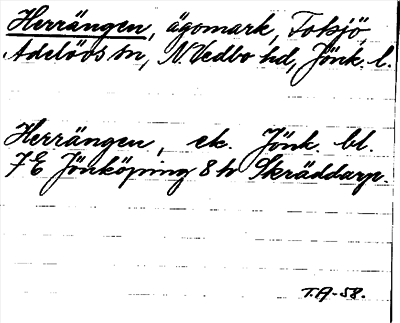 Herrängen, ägomark, Toksjö,
Adelövs sn, N. Vedbo hd, Jönk. l.
Herrängen, ek. Jönk. bl.
7E Jönköping 8h Skräddarp.
T.A-58.